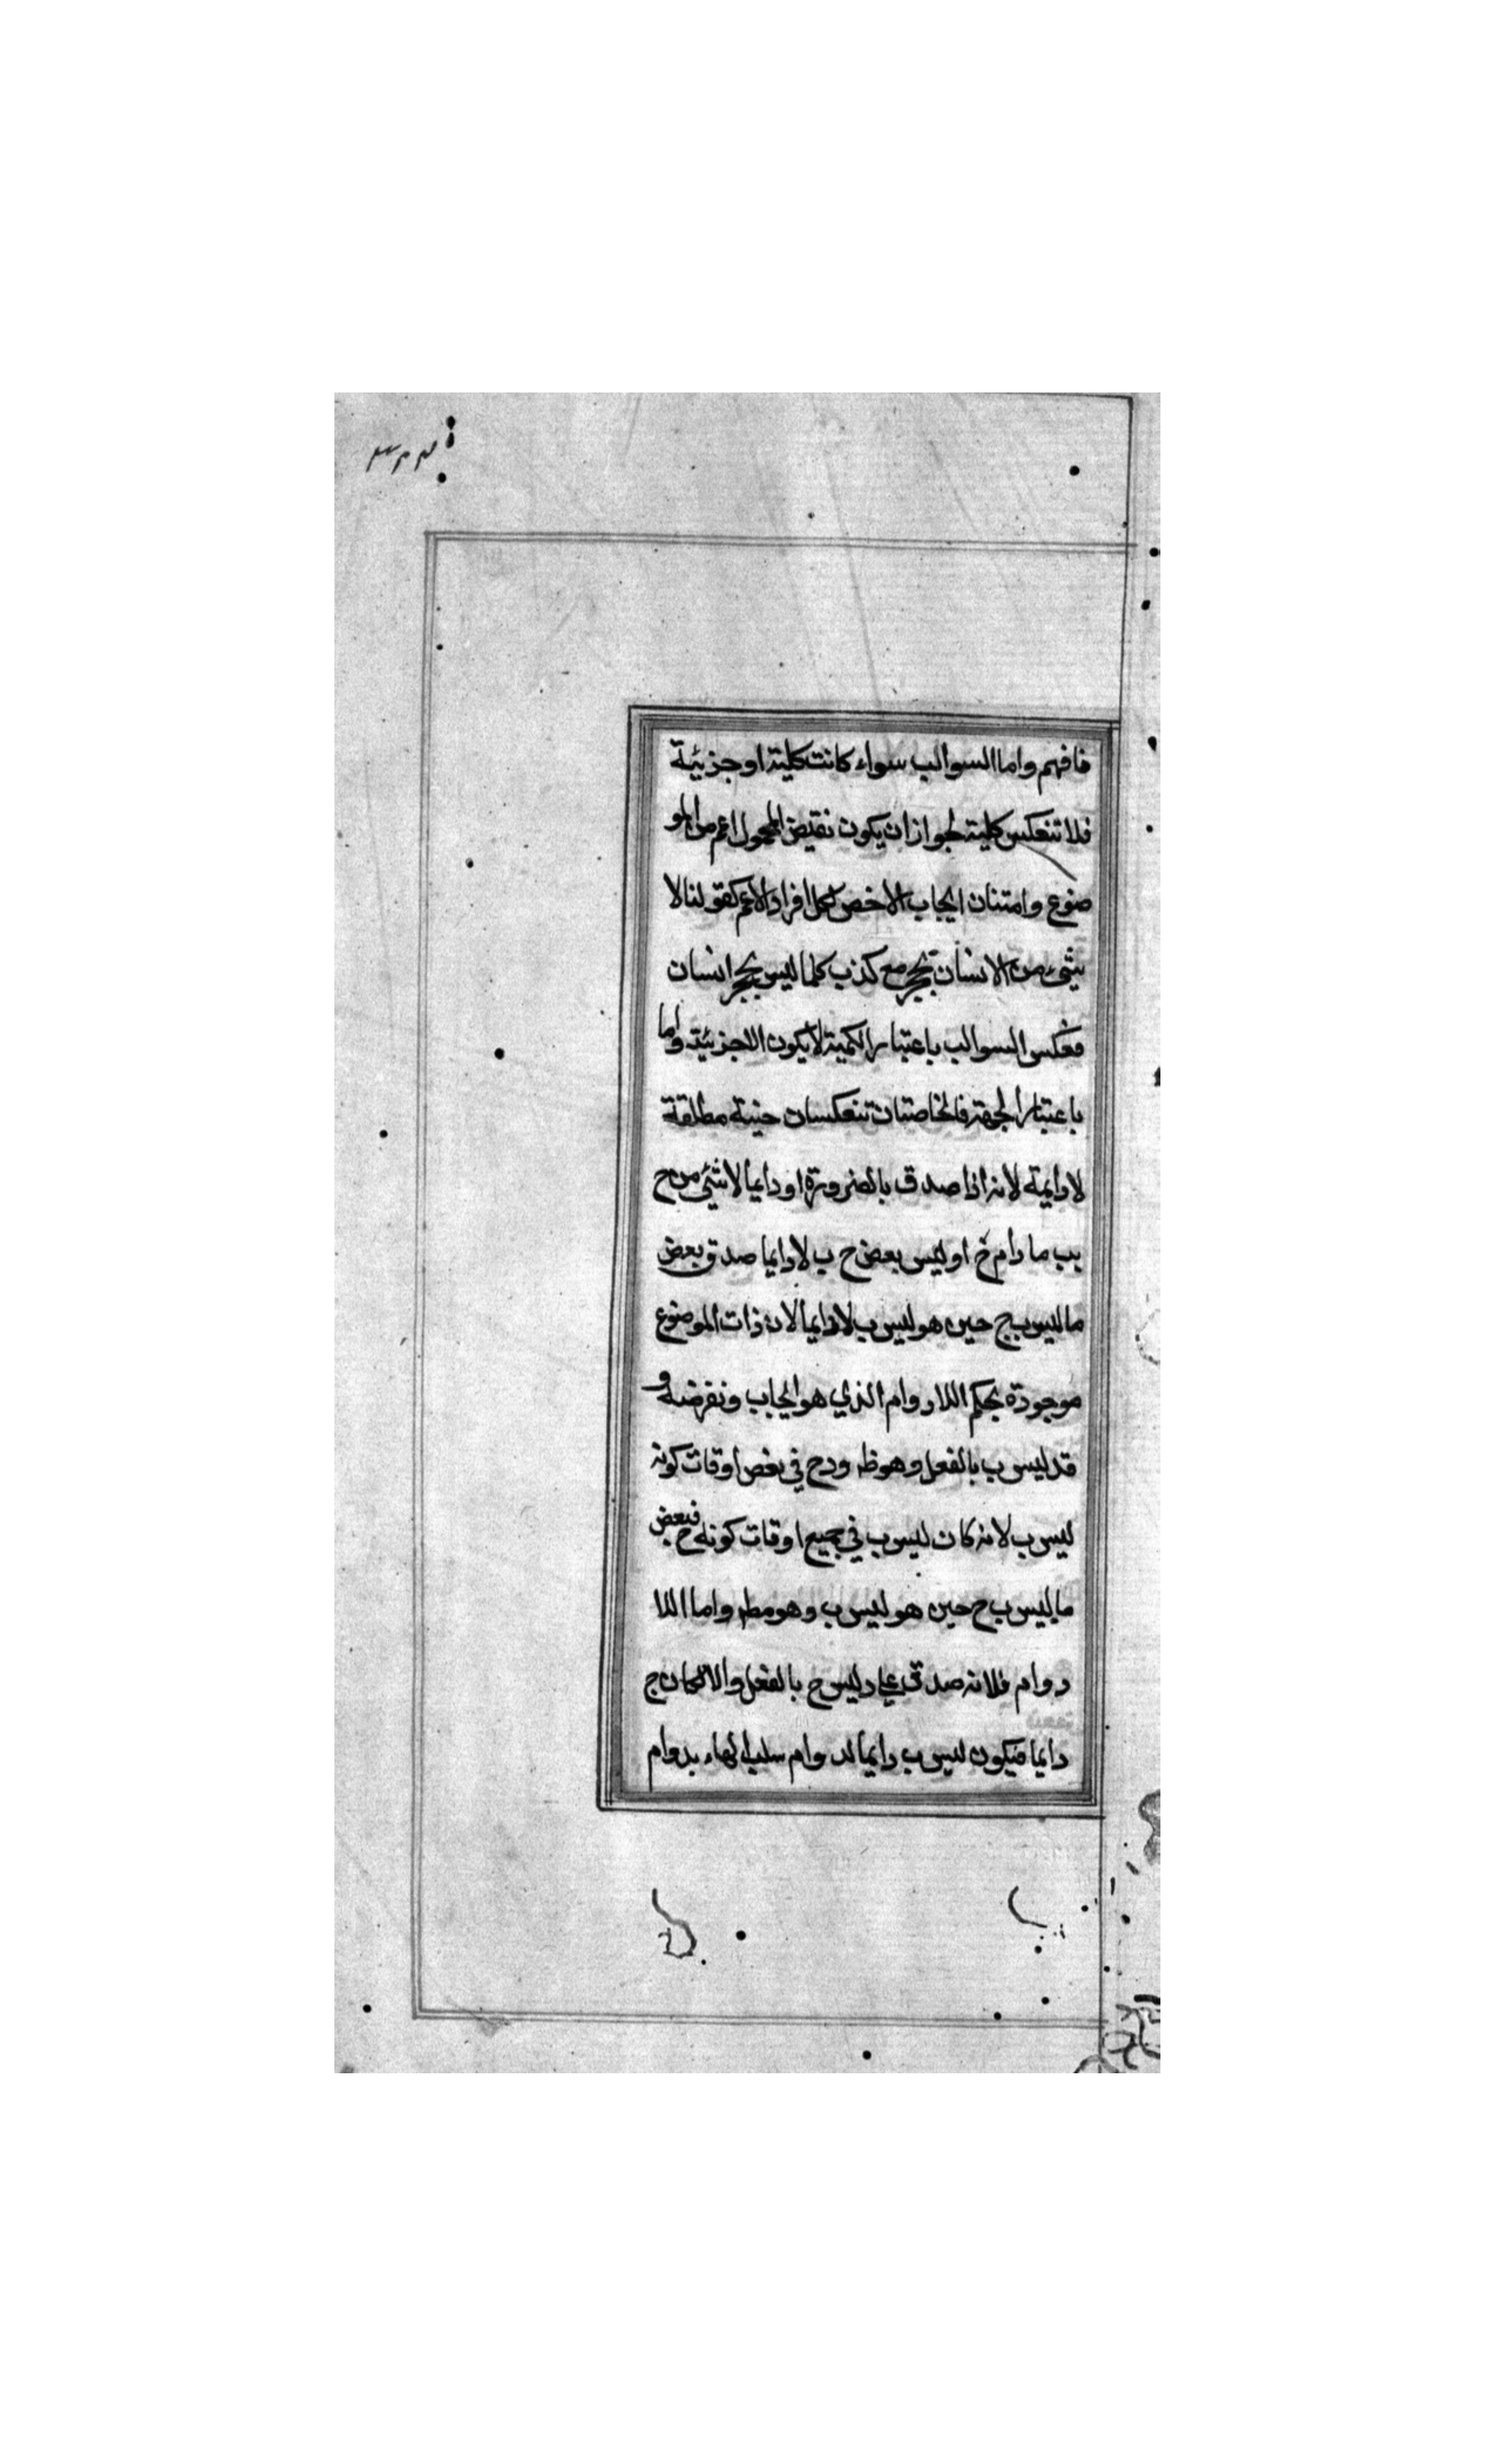 فافهم واما السوالب سواء كانت كلية او جزئية
فلا تنعكس كلية لجواز ان يكون نقيض المحمول اعم من المو
ضوع وامتنان ايجاب الاخص لكل افراد الاعم كقولنا لا
شئ من الانسان بحجر مع كذب كلما ليس بحجر انسان
فعكس السوالب باعتبار الكمية لا يكون الا جزئية واما
باعتبار الجهة فالخاصتان تنعكسان حينية مطلقة
لا دايمة لانه اذا صدق بالضرورة او دايما لا شئ من ح
بب ما دام ح او ليس بعض ح ب لا دايما صدق بعض
ما ليس بج حين هو ليس ب لا دايما لان ذات الموضوع
موجودة بحكم اللادوام الذي هو ايجاب ونفرضه و
قد ليس ب بالفعل وهو ظ ودح في بعض اوقات كونه
ليس ب لانه كان ليس ب في جميع اوقات كونه ح فبعض
ما ليس ب ح حين هو ليس ب وهو مط واما اللا
دوام فلانه صدق على د ليس ح بالفعل والا لكان ج
دايما فيكون ليس ب دايما لدوام سلب الهاء بدوام